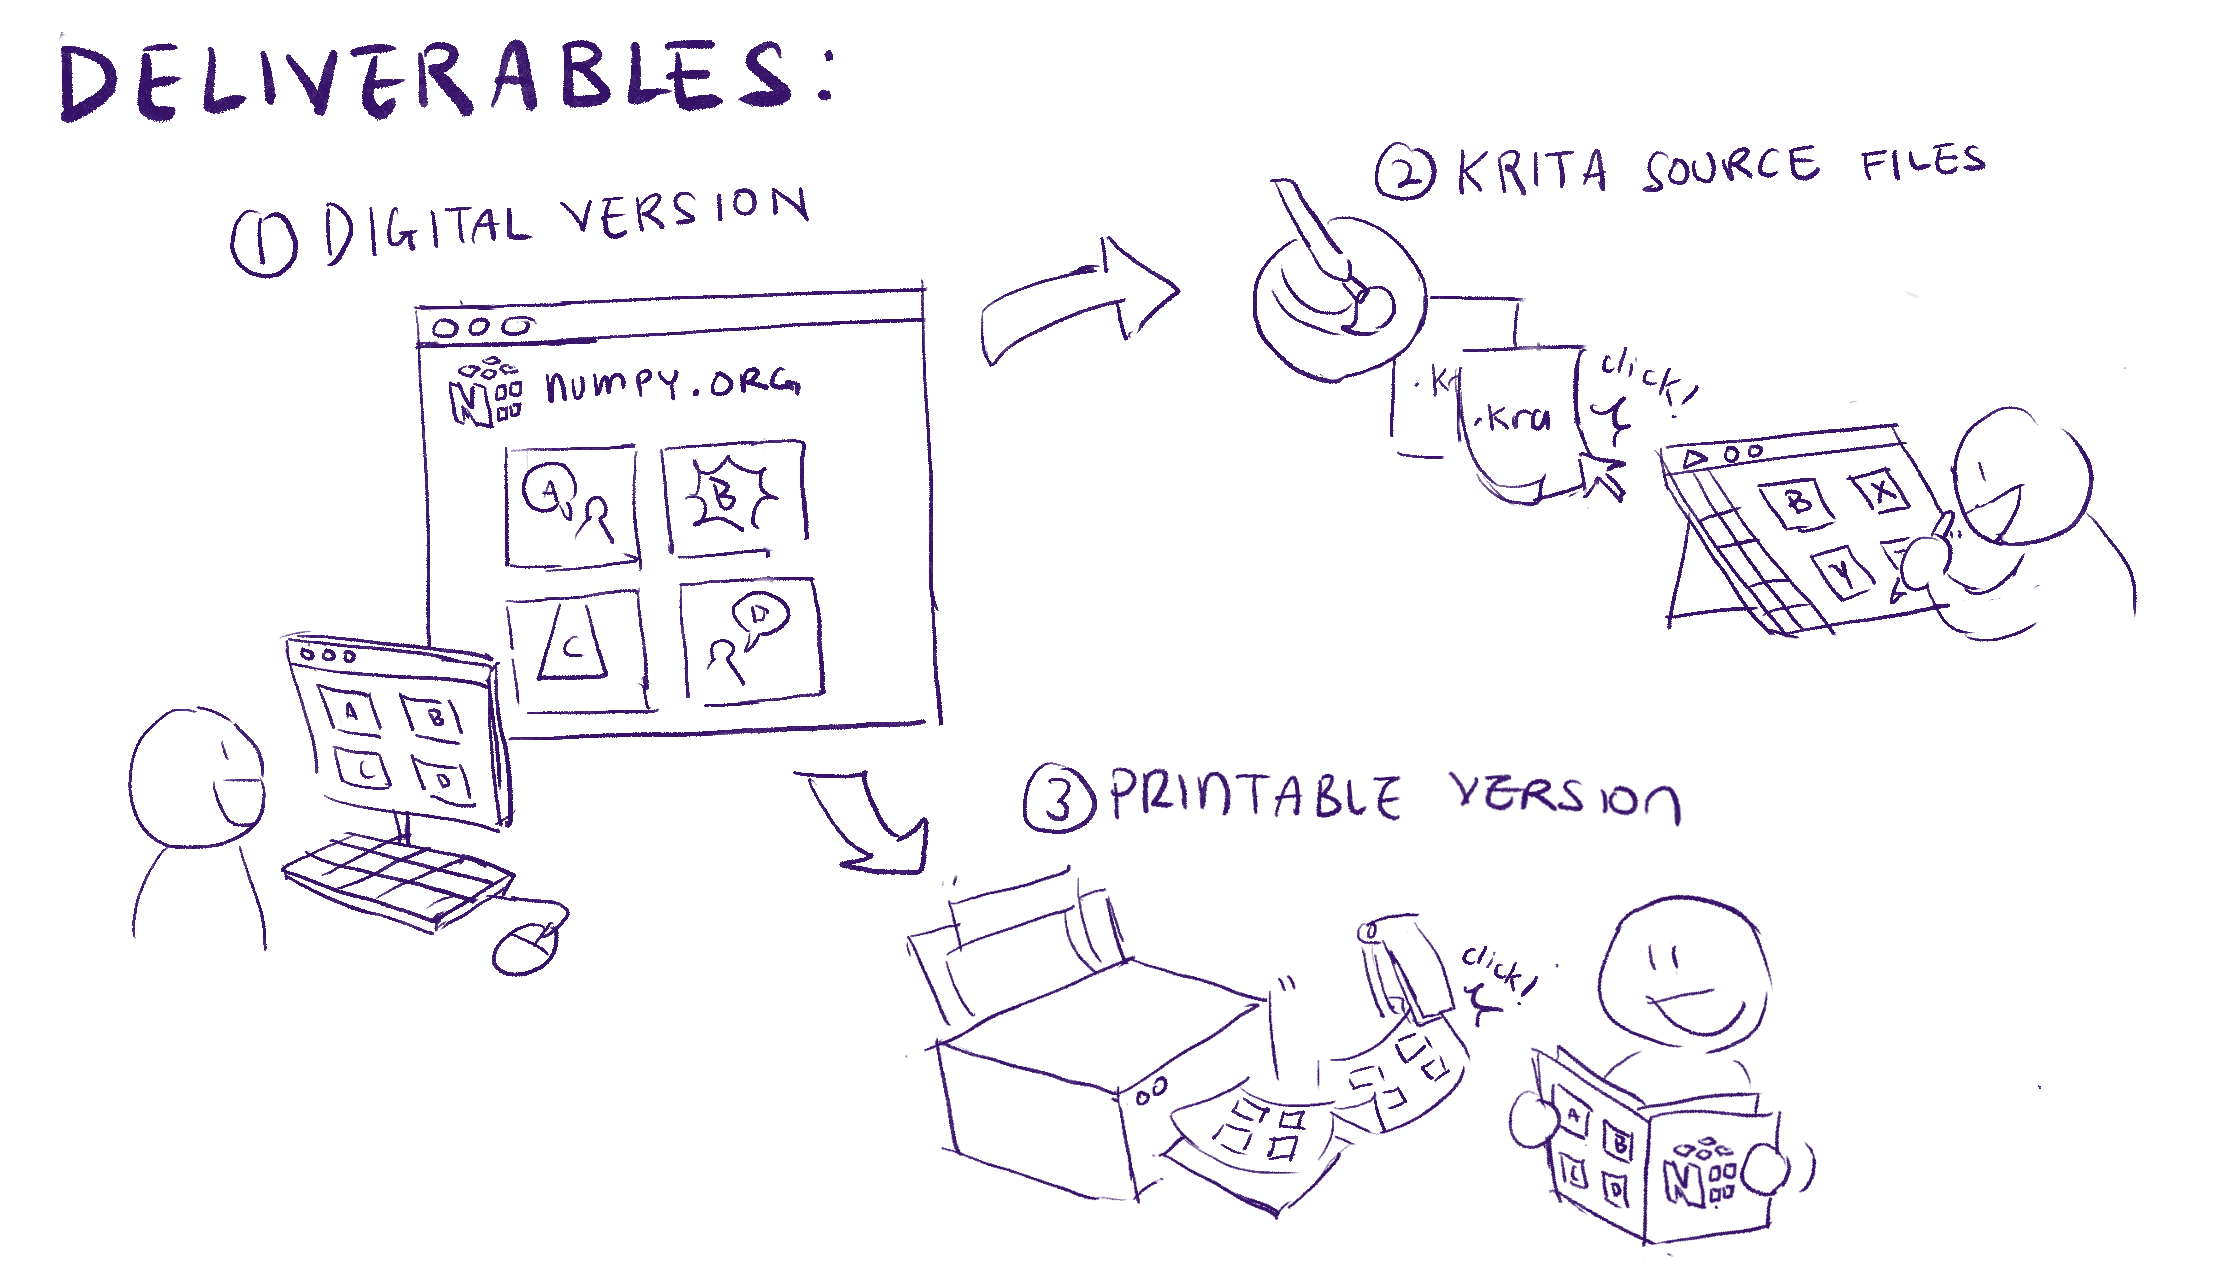 DELIVERABLES:
① DIGITAL VERSION
numpy.ORG
A
B
C
D
A
B
C
D
② KRITA SOURCE FILES
.kra
click!
B
X
Y
③ PRINTABLE VERSION
click!
A
B
C
D
N